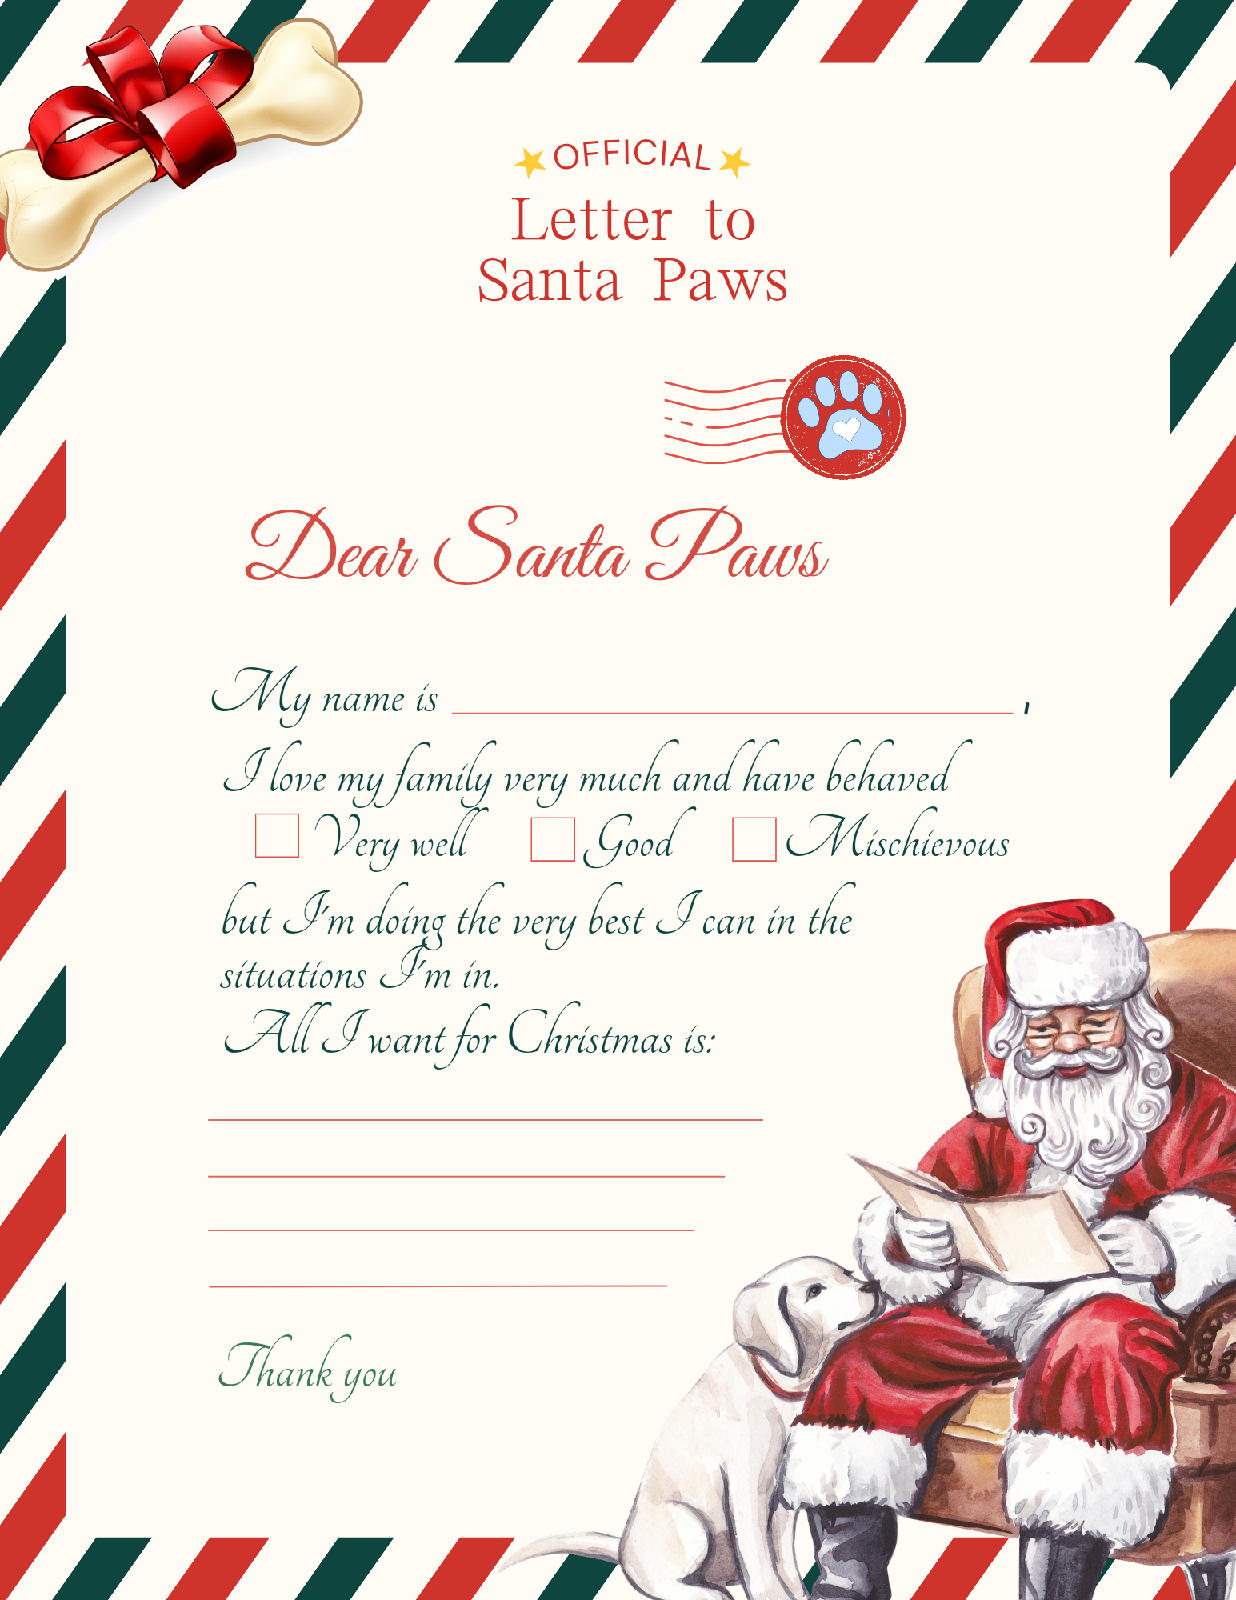 OFFICIAL
Letter to
Santa Paws
Dear Santa Paws
My name is ,
I love my family very much and have behaved
Very well Good Mischievous
but I'm doing the very best I can in the
situations I'm in.
All I want for Christmas is:
Thank you